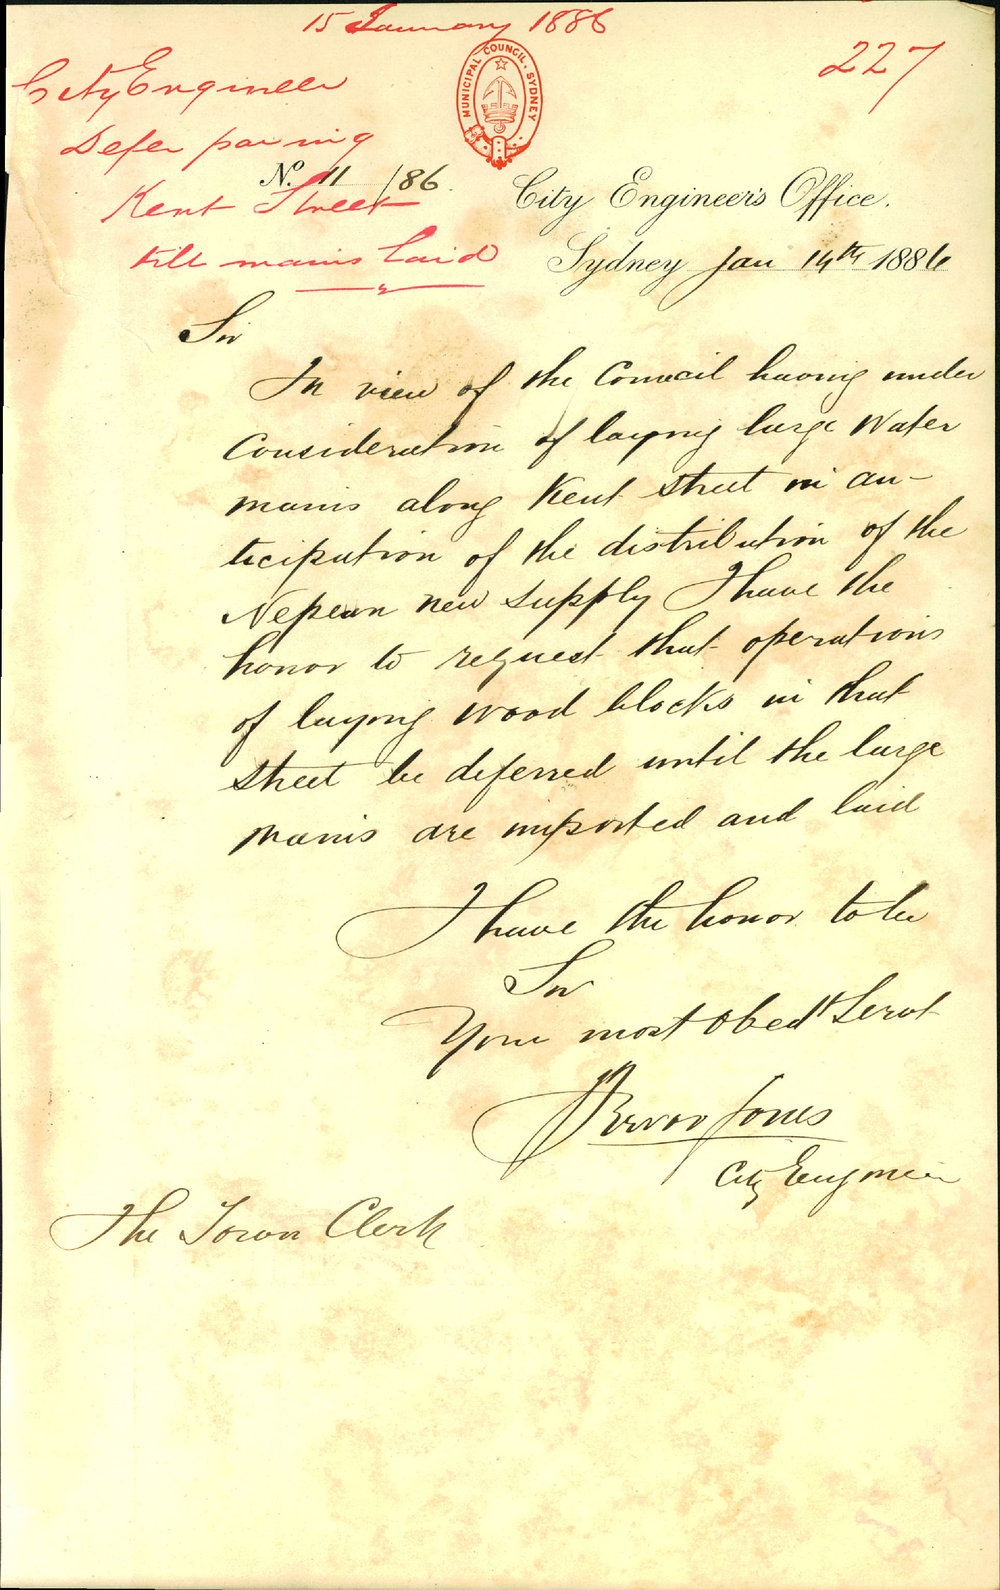 15 January 1886
227
City Engineer
Defer paving
Kent Street
till mains laid
MUNICIPAL COUNCIL. SYDNEY
No. 11 /86.
City Engineer's Office.
Sydney Jan 14th 1886
Sir
In view of the Council having under
Consideration of laying large Water
mains along Kent Street in an-
ticipation of the distribution of the
Nepean new supply I have the
honor to request that operations
of laying wood blocks in that
street be deferred until the large
mains are imported and laid
I have the honor to be
Sir
Your most Obedt Servt
Trevor Jones
City Engineer
The Town Clerk